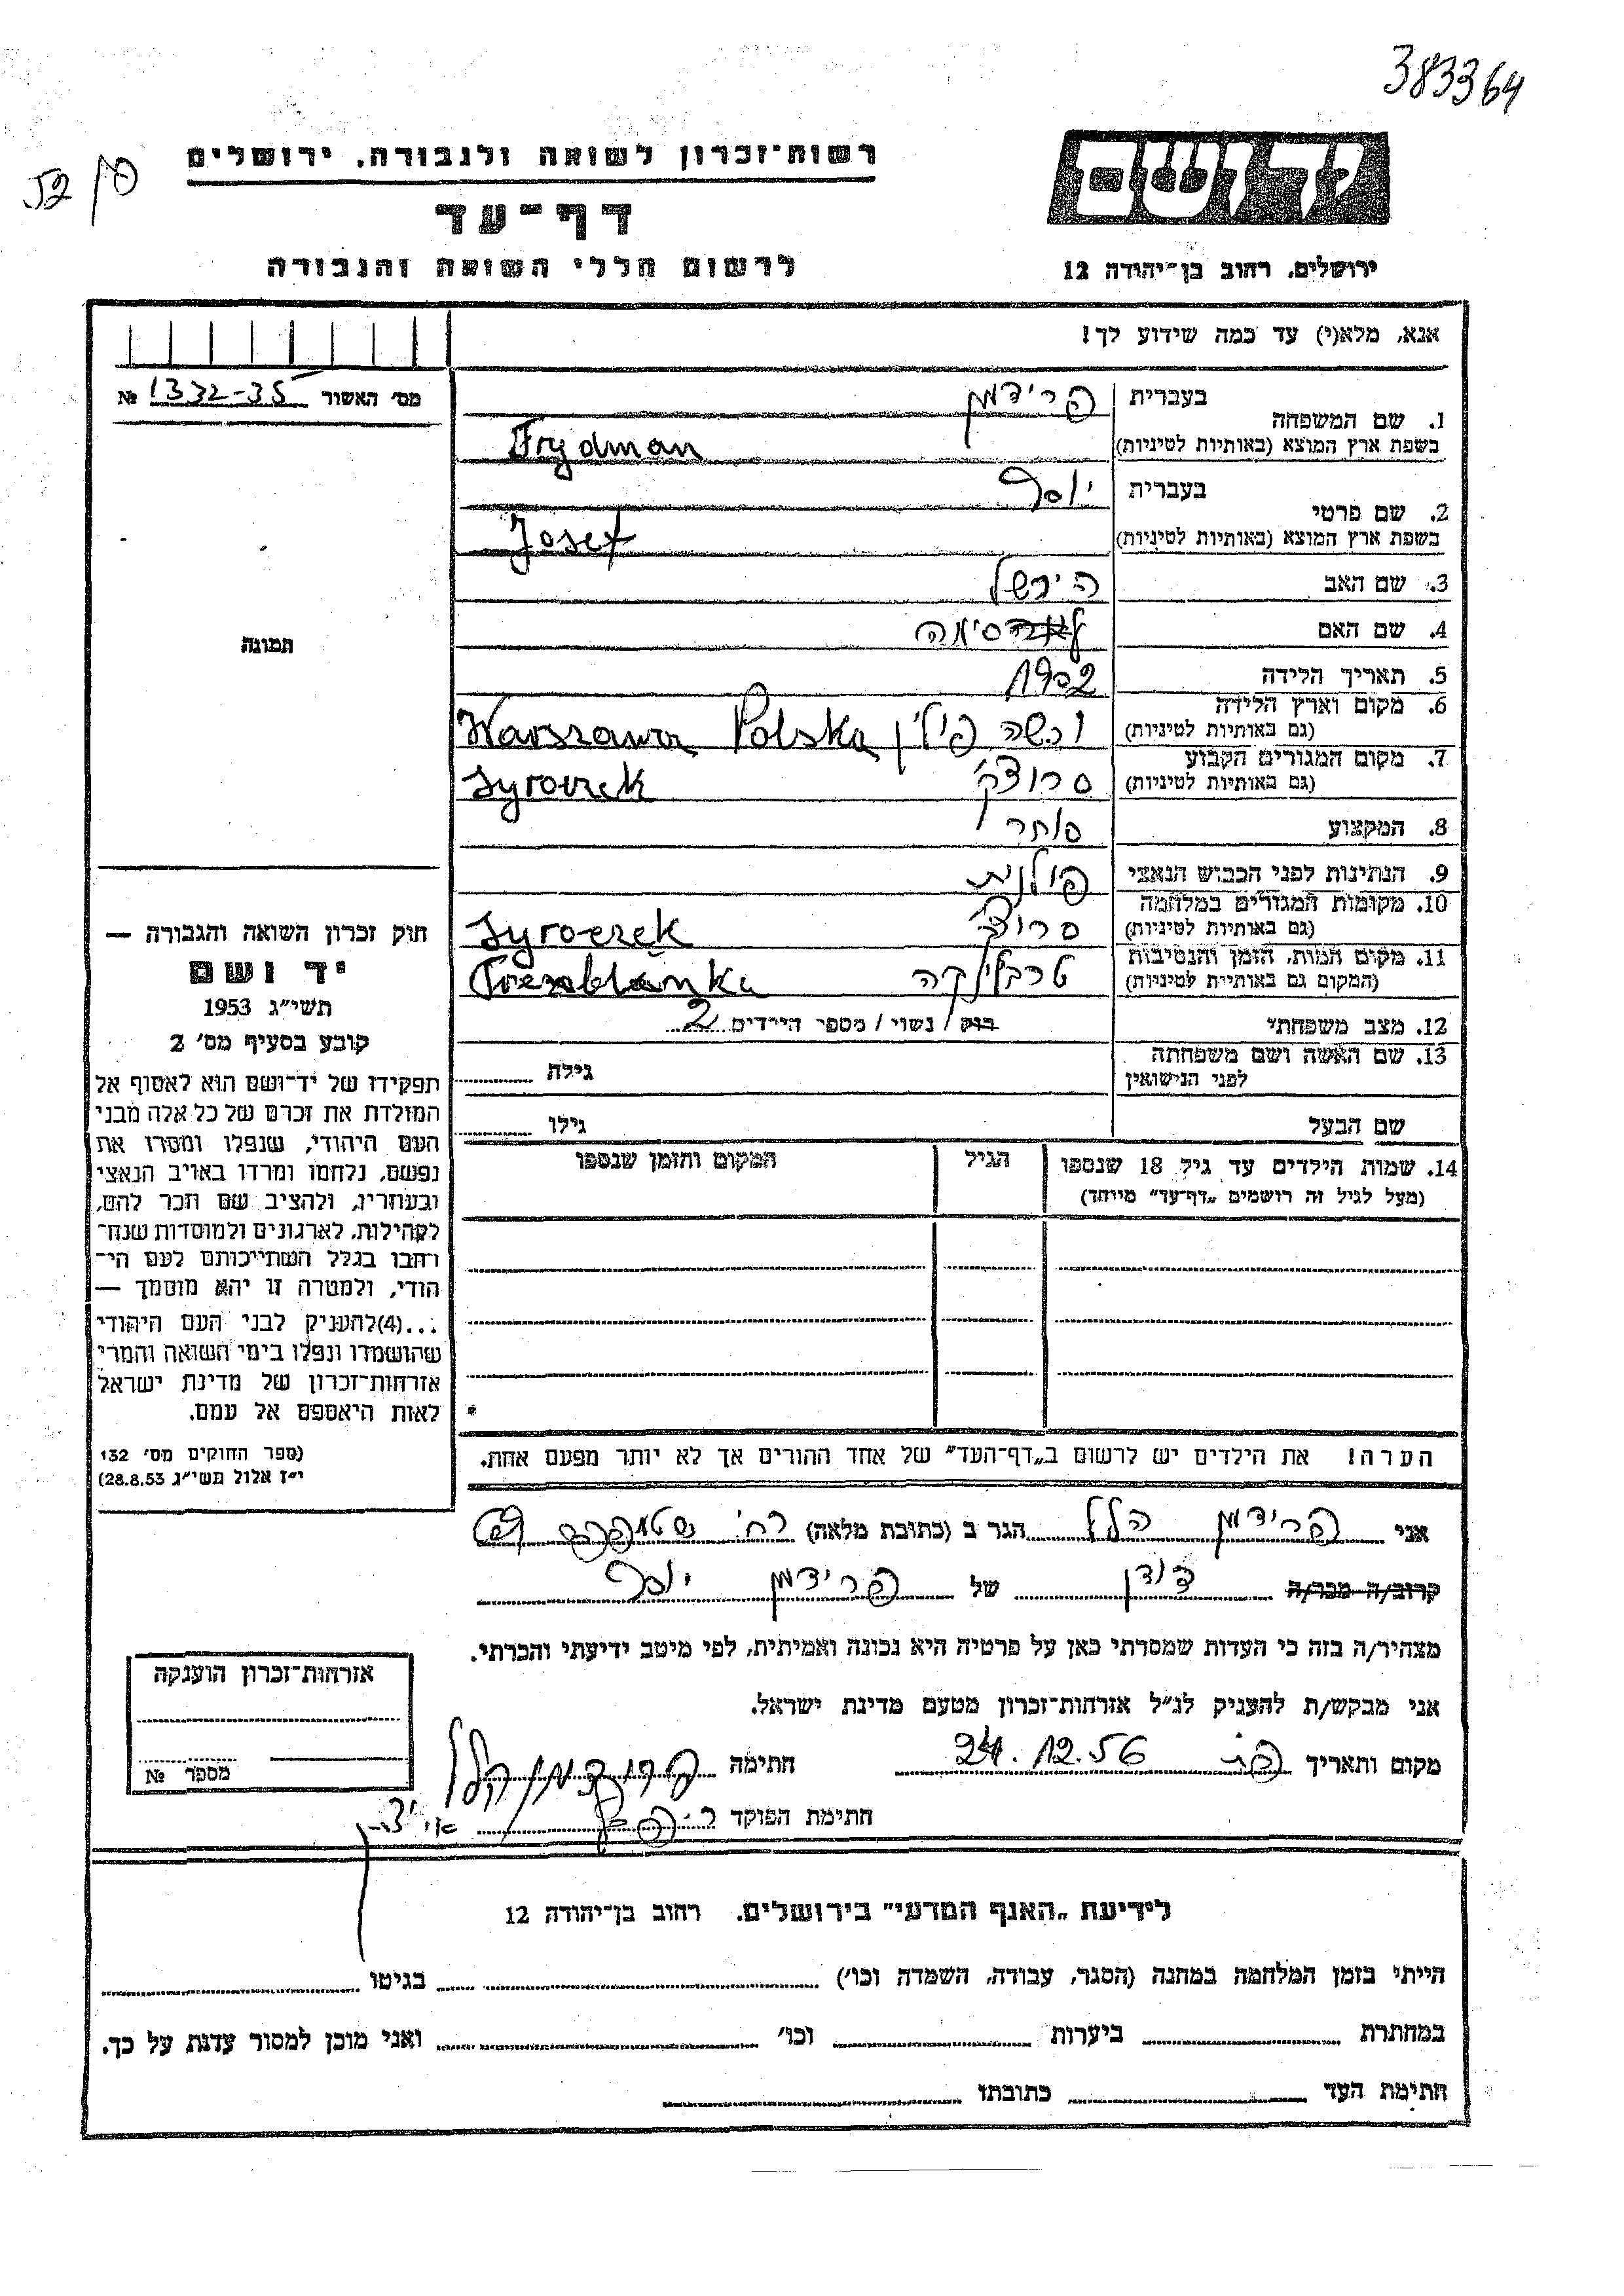 383364
52/0
ידושם
רשות־זכרון לשואה ולגבורה, ירושלים
דף־עד
לרשום חללי השואה והגבורה
ירושלים, רחוב בן־יהודה 12
אנא, מלא(י) עד כמה שידוע לך!
מס' האשור 1332-35 №
1. שם המשפחה
בעברית פרידמן
בשפת ארץ המוצא (באותיות לטיניות) Frydman
2. שם פרטי
בעברית יוסף
בשפת ארץ המוצא (באותיות לטיניות) Josef
3. שם האב הירשל
4. שם האם סימה
5. תאריך הלידה 1902
6. מקום וארץ הלידה
(גם באותיות לטיניות) ורשה פולין Warszawa Polska
7. מקום המגורים הקבוע
(גם באותיות לטיניות) סרוצק Syroczek
8. המקצוע סוחר
9. הנתינות לפני הכבוש הנאצי פולנית
10. מקומות המגורים במלחמה
(גם באותיות לטיניות) סרוצק Syroczek
11. מקום המות, הזמן והנסיבות
(המקום גם באותיות לטיניות) טרבלינקה
12. מצב משפחתי רווק / נשוי / מספר הילדים 2
13. שם האשה ושם משפחתה
לפני הנישואין גילה
שם הבעל גילו
14. שמות הילדים עד גיל 18 שנספו
(מעל לגיל זה רושמים „דף־עד” מיוחד)
הגיל
המקום והזמן שנספו
הערה! את הילדים יש לרשום ב„דף־העד” של אחד ההורים אך לא יותר מפעם אחת.
תמונה
חוק זכרון השואה והגבורה —
יד ושם
תשי״ג 1953
קובע בסעיף מס' 2
תפקידו של יד־ושם הוא לאסוף אל
המולדת את זכרם של כל אלה מבני
העם היהודי, שנפלו ומסרו את
נפשם, נלחמו ומרדו באויב הנאצי
ובעוזריו, ולהציב שם וזכר להם,
לקהילות, לארגונים ולמוסדות שנח־
רבו בגלל השתייכותם לעם הי־
הודי, ולמטרה זו יהא מוסמך —
...(4)להעניק לבני העם היהודי
שהושמדו ונפלו בימי השואה והמרי
אזרחות־זכרון של מדינת ישראל
לאות היאספם אל עמם.
(ספר החוקים מס' 132
י״ז אלול תשי״ג 28.8.53)
אני פרידמן הלל הגר ב (כתובת מלאה) רח'
קרוב/ה מכר/ה דודן של פרידמן יוסף
מצהיר/ה בזה כי העדות שמסרתי כאן על פרטיה היא נכונה ואמיתית, לפי מיטב ידיעתי והכרתי.
אני מבקש/ת להעניק לנ״ל אזרחות־זכרון מטעם מדינת ישראל.
מקום ותאריך 24.12.56 חתימה פרידמן הלל
חתימת הפוקד
אזרחות־זכרון הוענקה
מספר №
לידיעת „האגף המדעי” בירושלים, רחוב בן־יהודה 12
הייתי בזמן המלחמה במחנה (הסגר, עבודה, השמדה וכו') בגיטו
במחתרת ביערות וכו' ואני מוכן למסור עדות על כך.
חתימת העד כתובתו